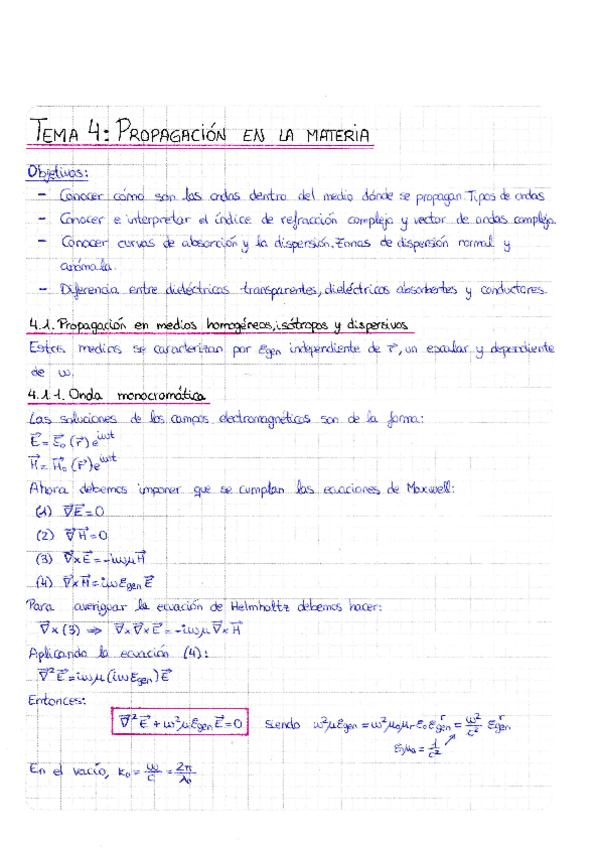 TEMA 4: PROPAGACIÓN EN LA MATERIA
Objetivos:
- Conocer cómo son las ondas dentro del medio dónde se propagan. Tipos de ondas
- Conocer e interpretar el índice de refracción complejo y vector de ondas complejo.
- Conocer curvas de absorción y la dispersión. Zonas de dispersión normal y
anómala.
- Diferencia entre dieléctricos transparentes, dieléctricos absorbentes y conductores.
4.1. Propagación en medios homogéneos, isótropos y dispersivos
Estos medios se caracterizan por εgen independiente de r⃗, un escalar y dependiente
de ω.
4.1.1. Onda monocromática
Las soluciones de los campos electromagnéticos son de la forma:
E⃗ = E⃗₀ (r⃗) e^{iωt}
H⃗ = H⃗₀ (r⃗) e^{iωt}
Ahora debemos imponer que se cumplan las ecuaciones de Maxwell:
(1) ∇⃗E⃗ = 0
(2) ∇⃗H⃗ = 0
(3) ∇⃗×E⃗ = -iωμH⃗
(4) ∇⃗×H⃗ = iωεgen E⃗
Para averiguar la ecuación de Helmholtz debemos hacer:
∇⃗×(3) ⇒ ∇⃗×∇⃗×E⃗ = -iωμ∇⃗×H⃗
Aplicando la ecuación (4):
∇⃗²E⃗ = iωμ(iωεgen)E⃗
Entonces:
∇⃗²E⃗ + ω²μεgen E⃗ = 0 siendo ω²μεgen = ω²μ₀μᵣε₀εʳgen = ω²/c² εʳgen
ε₀μ₀ = 1/c²
En el vacío, k₀ = ω/c = 2π/λ₀